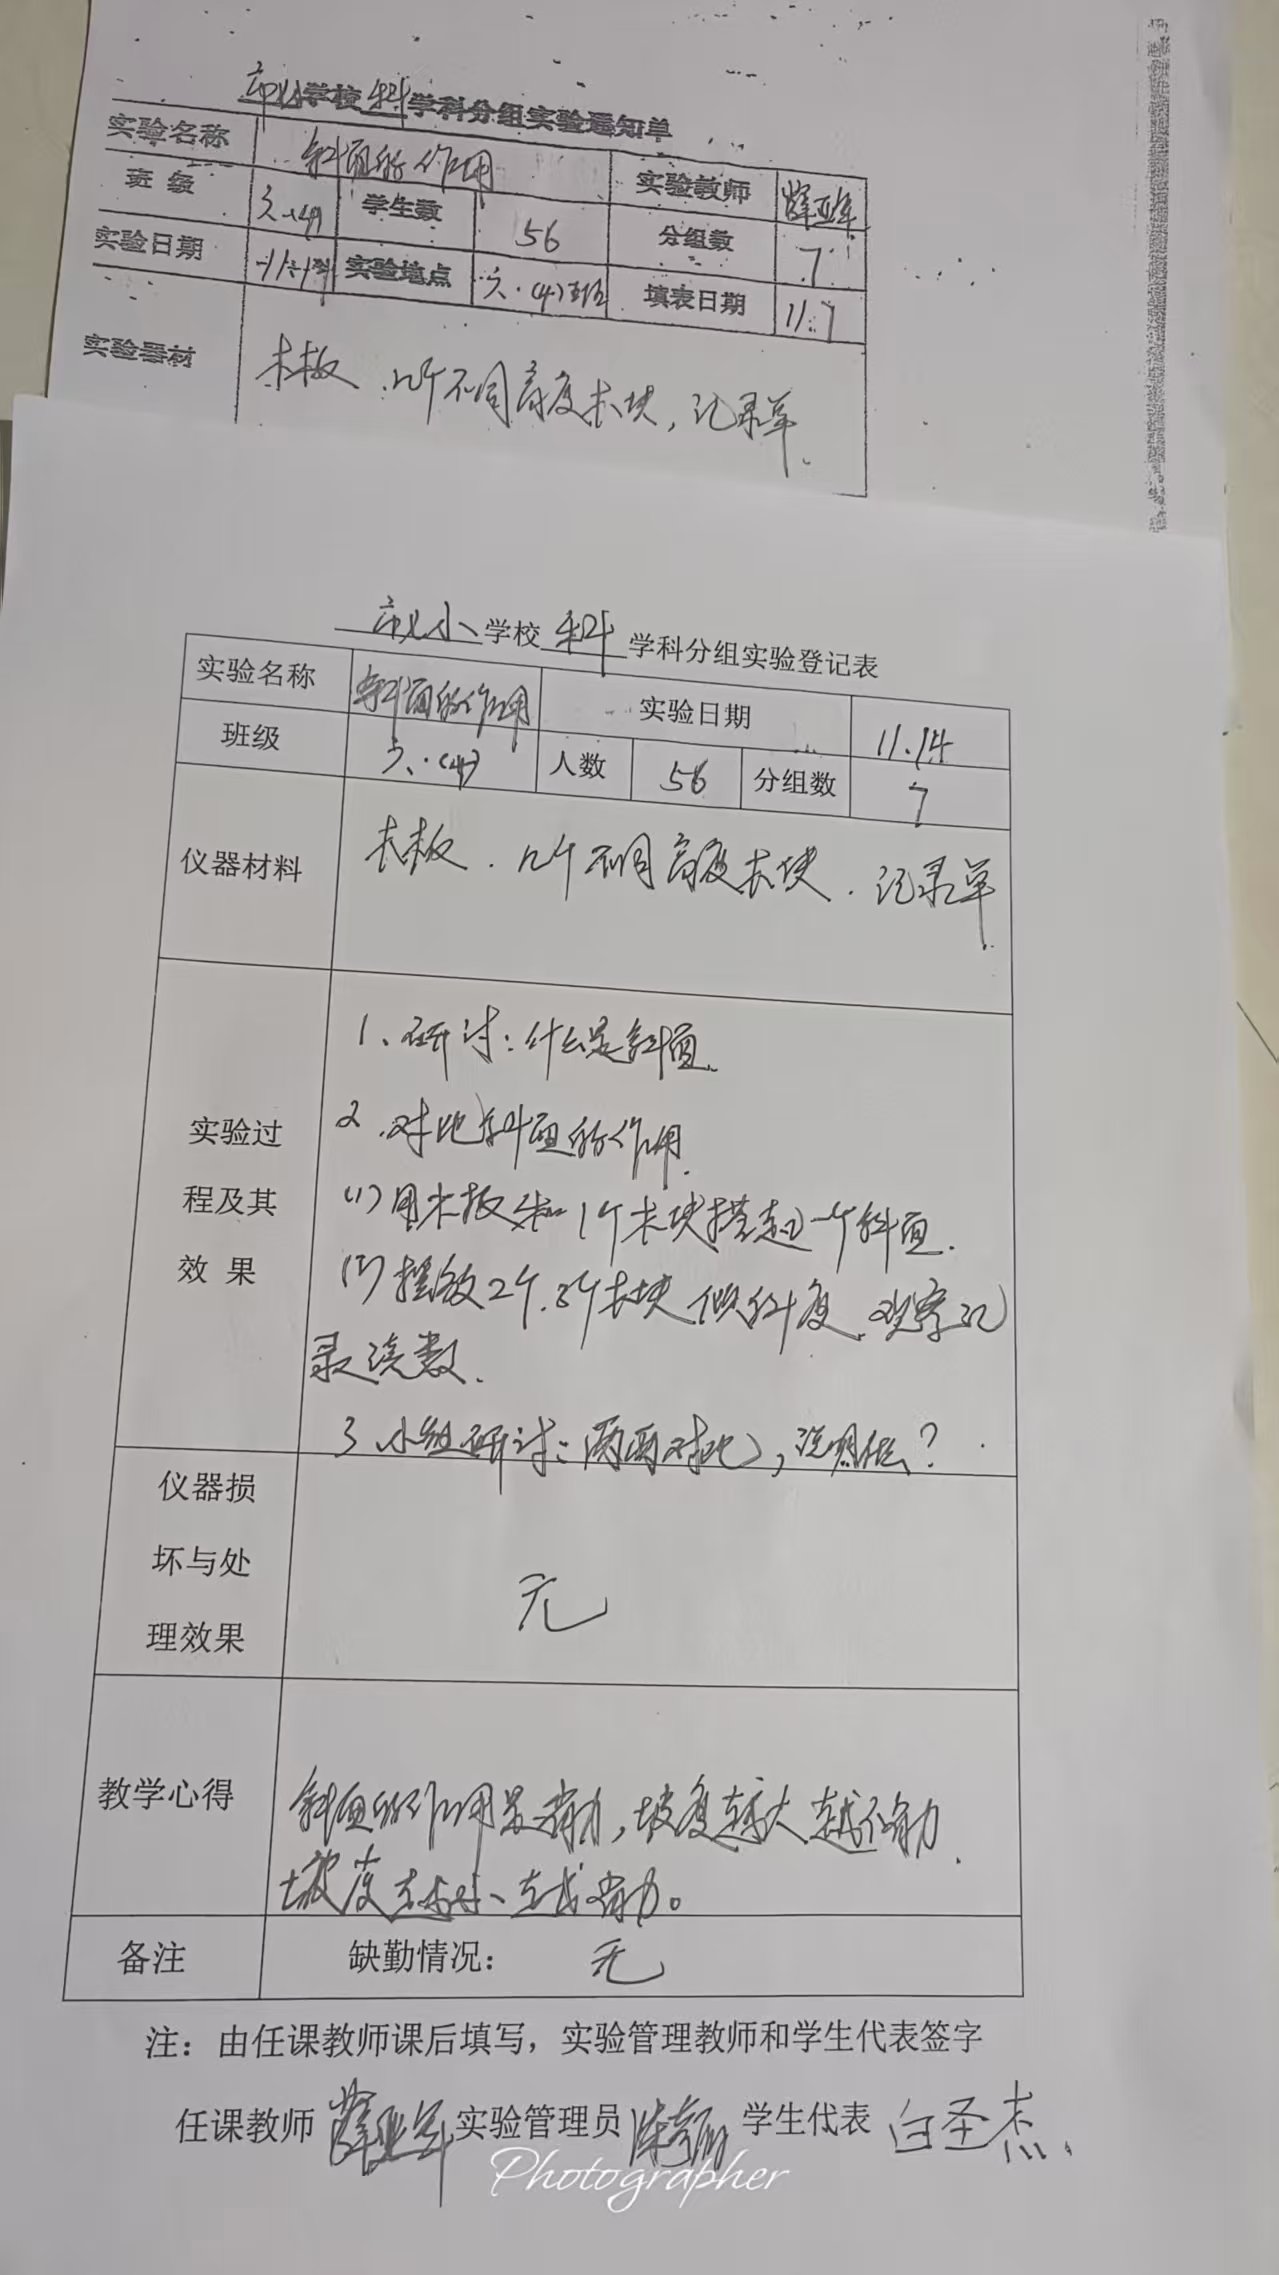 学校 科 学科分组实验通知单
实验名称 斜面的作用 实验教师
班 级 六.(4) 学生数 56 分组数 7
实验日期 实验地点 六.(4)班 填表日期 11.7
实验器材 木板.几个不同高度木块,记录单.
学校 科 学科分组实验登记表
实验名称 斜面的作用 实验日期 11.14
班级 六.(4) 人数 56 分组数 7
仪器材料 木板.几个不同高度木块.记录单.
实验过
程及其
效 果
1、研讨:什么是斜面.
2.对比斜面的作用.
(1)用木板和1个木块搭起一个斜面.
(2)摆放2个.3个木块做斜度.观察记
录读数.
3.小组研讨:两两对比,说明什么?
仪器损
坏与处
理效果
无
教学心得
斜面的作用是省力,坡度越大越不省力.
坡度越小、越省力。
备注 缺勤情况: 无
注:由任课教师课后填写,实验管理教师和学生代表签字
任课教师 实验管理员 学生代表 白圣杰
Photographer